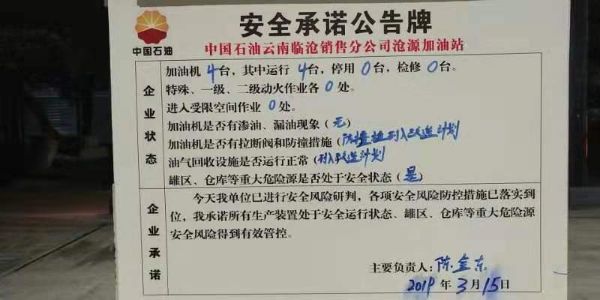 中国石油
安全承诺公告牌
中国石油云南临沧销售分公司沧源加油站
企业状态
加油机 4台，其中运行 4台，停用 0台，检修 0台。
特殊、一级、二级动火作业各 0 处。
进入受限空间作业 0 处。
加油机是否有渗油、漏油现象（ 无 ）
加油机是否有拉断阀和防撞措施（防撞措列入改造计划
油气回收设施是否运行正常（列入改造计划
罐区、仓库等重大危险源是否处于安全状态（ 是 ）
企业承诺
今天我单位已进行安全风险研判，各项安全风险防控措施已落实到
位，我承诺所有生产装置处于安全运行状态、罐区、仓库等重大危险源
安全风险得到有效管控。
主要负责人：陈金东
2019 年 3 月 15 日